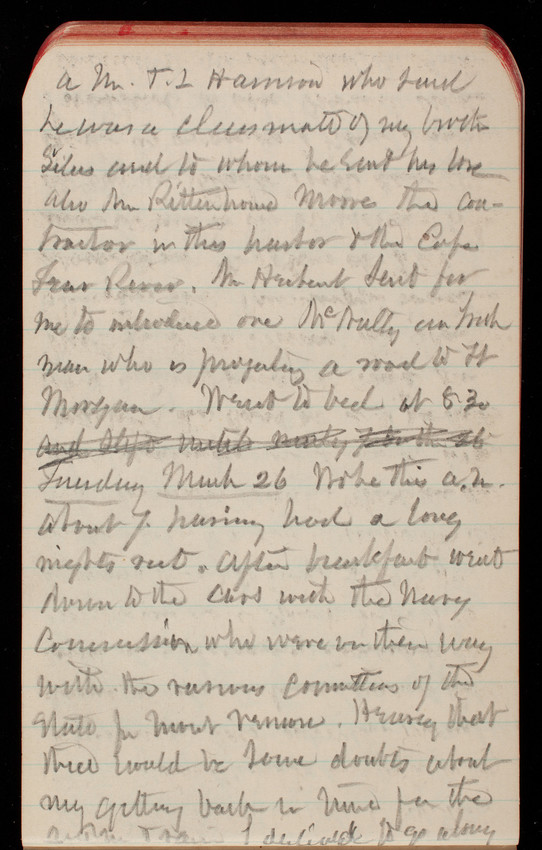 a Mr. T. L Harrison who said
he was a classmate of my brother
Silas and to whom he sent his love
also Mr Rittenhouse Moore the con-
tractor in this harbor & the Cape
Fear River. Mr Herbert sent for
me to introduce one McNulty an Irish
man who is projecting a road to Ft
Morgan. Went to bed at 8 30
and slept until nearly 7 on the 26
Tuesday March 26 Woke this a.m.
about 7. having had a long
nights rest. After breakfast went
down to the cars with the Navy
Commission, who were on their way
with the various committees of the
State for Mount Vernon. Hearing that
there would be some doubts about
my getting back in time for the
train I declined to go along